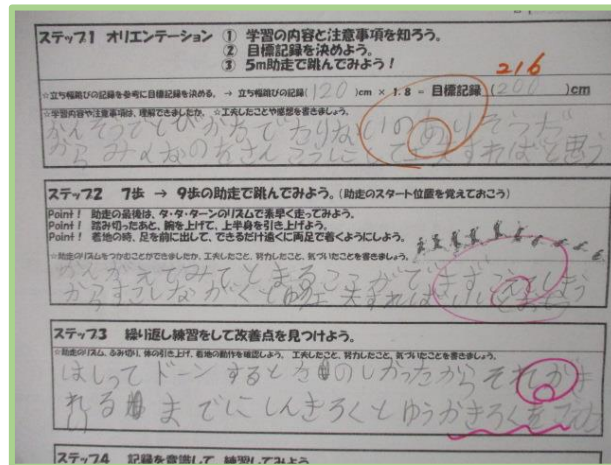 ステップ1 オリエンテーション ① 学習の内容と注意事項を知ろう。
② 目標記録を決めよう。
③ 5m助走で跳んでみよう！
216
☆立ち幅跳びの記録を参考に目標記録を決める。 → 立ち幅跳びの記録(120)cm × 1.8 = 目標記録 (200)cm
☆学習内容や注意事項は、理解できましたか。 ☆工夫したことや感想を書きましょう。
からみんなの すればと思う
ステップ2 7歩 → 9歩の助走で跳んでみよう。(助走のスタート位置を覚えておこう)
Point！ 助走の最後は、タ・タ・ターンのリズムで素早く走ってみよう。
Point！ 踏み切ったあと、腕を上げて、上半身を引き上げよう。
Point！ 着地の時、足を前に出して、できるだけ遠くに両足で着くようにしよう。
☆助走のリズムをつかむことができましたか。工夫したこと、努力したこと、気づいたことを書きましょう。
かんがえてみてとまるところが
ステップ3 繰り返し練習をして改善点を見つけよう。
☆助走のリズム、ふみ切り、体の引き上げ、着地の動作を確認しよう。 工夫したこと、努力したこと、気づいたことを書きましょう。
はしって ドーン すると たのしかったから それが
れる までに しんきろくとゆうか きろくを
ステップ4 記録を意識して、練習してみよう